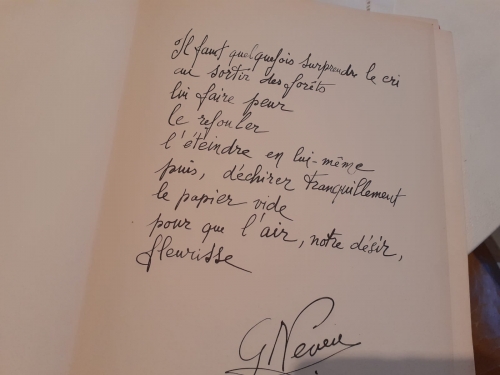 Il faut quelquefois surprendre le cri
au sortir des forêts
lui faire peur
le refouler
l'éteindre en lui-même
puis, déchirer tranquillement
le papier vide
pour que l'air, notre désir,
fleurisse
G